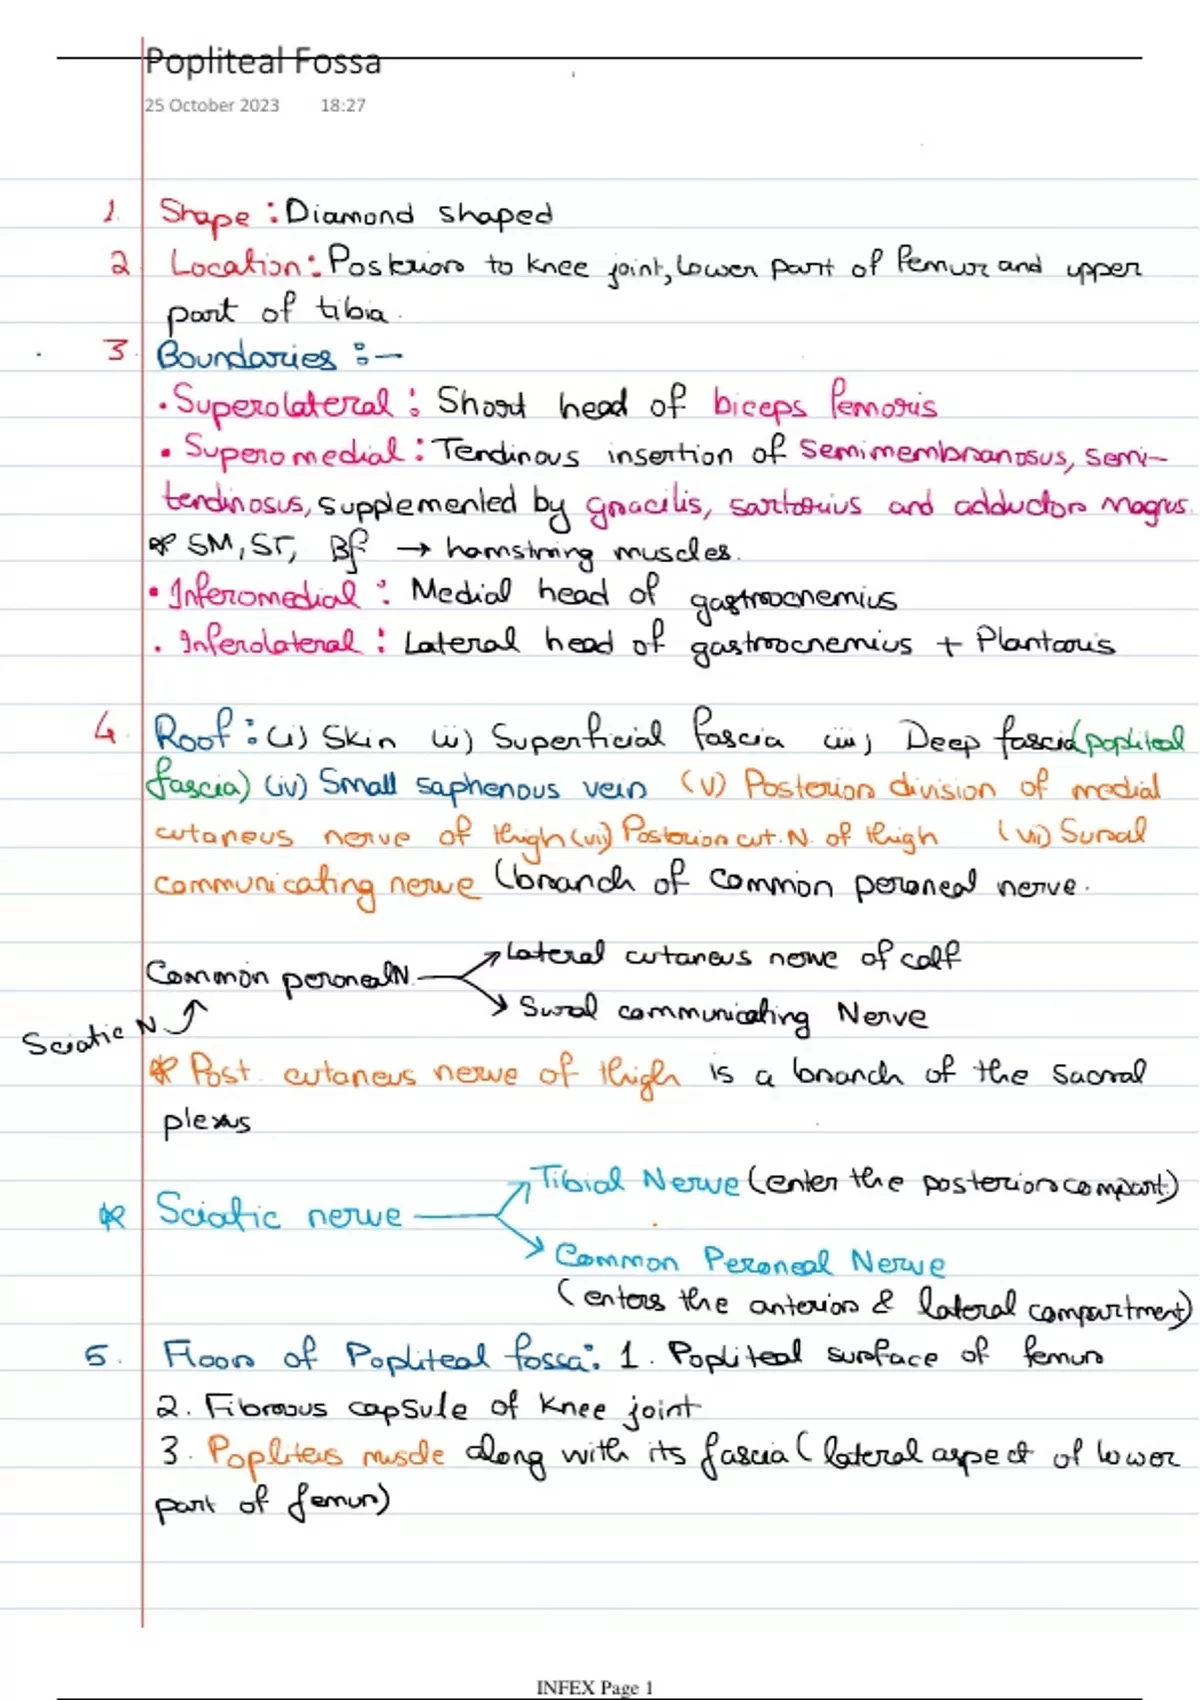 Popliteal Fossa
25 October 2023 18:27
1. Shape : Diamond shaped
2 Location : Posterior to knee joint, lower part of femur and upper
part of tibia.
3. Boundaries :-
• Superolateral : Short head of biceps femoris
• Superomedial : Tendinous insertion of semimembranosus, semi-
tendinosus, supplemented by gracilis, sartorius and adductor magnus.
* SM, ST, Bf → hamstring muscles.
• Inferomedial : Medial head of gastrocnemius
• Inferolateral : Lateral head of gastrocnemius + Plantaris
4. Roof : (i) Skin (ii) Superficial fascia (iii) Deep fascia (popliteal
fascia) (iv) Small saphenous vein (v) Posterior division of medial
cutaneus nerve of thigh (vii) Posterior cut. N. of thigh (vii) Sural
communicating nerve (branch of common peroneal nerve.
Lateral cutaneus nerve of calf
Common peroneal N.
Sural communicating Nerve
Sciatic N
* Post. cutaneus nerve of thigh is a branch of the sacral
plexus
Tibial Nerve (enter the posterior compart.)
* Sciatic nerve
Common Peroneal Nerve
(enters the anterior & lateral compartment)
5. Floor of Popliteal fossa : 1. Popliteal surface of femur
2. Fibrous capsule of knee joint
3. Popliteus muscle along with its fascia (lateral aspect of lower
part of femur)
INFEX Page 1